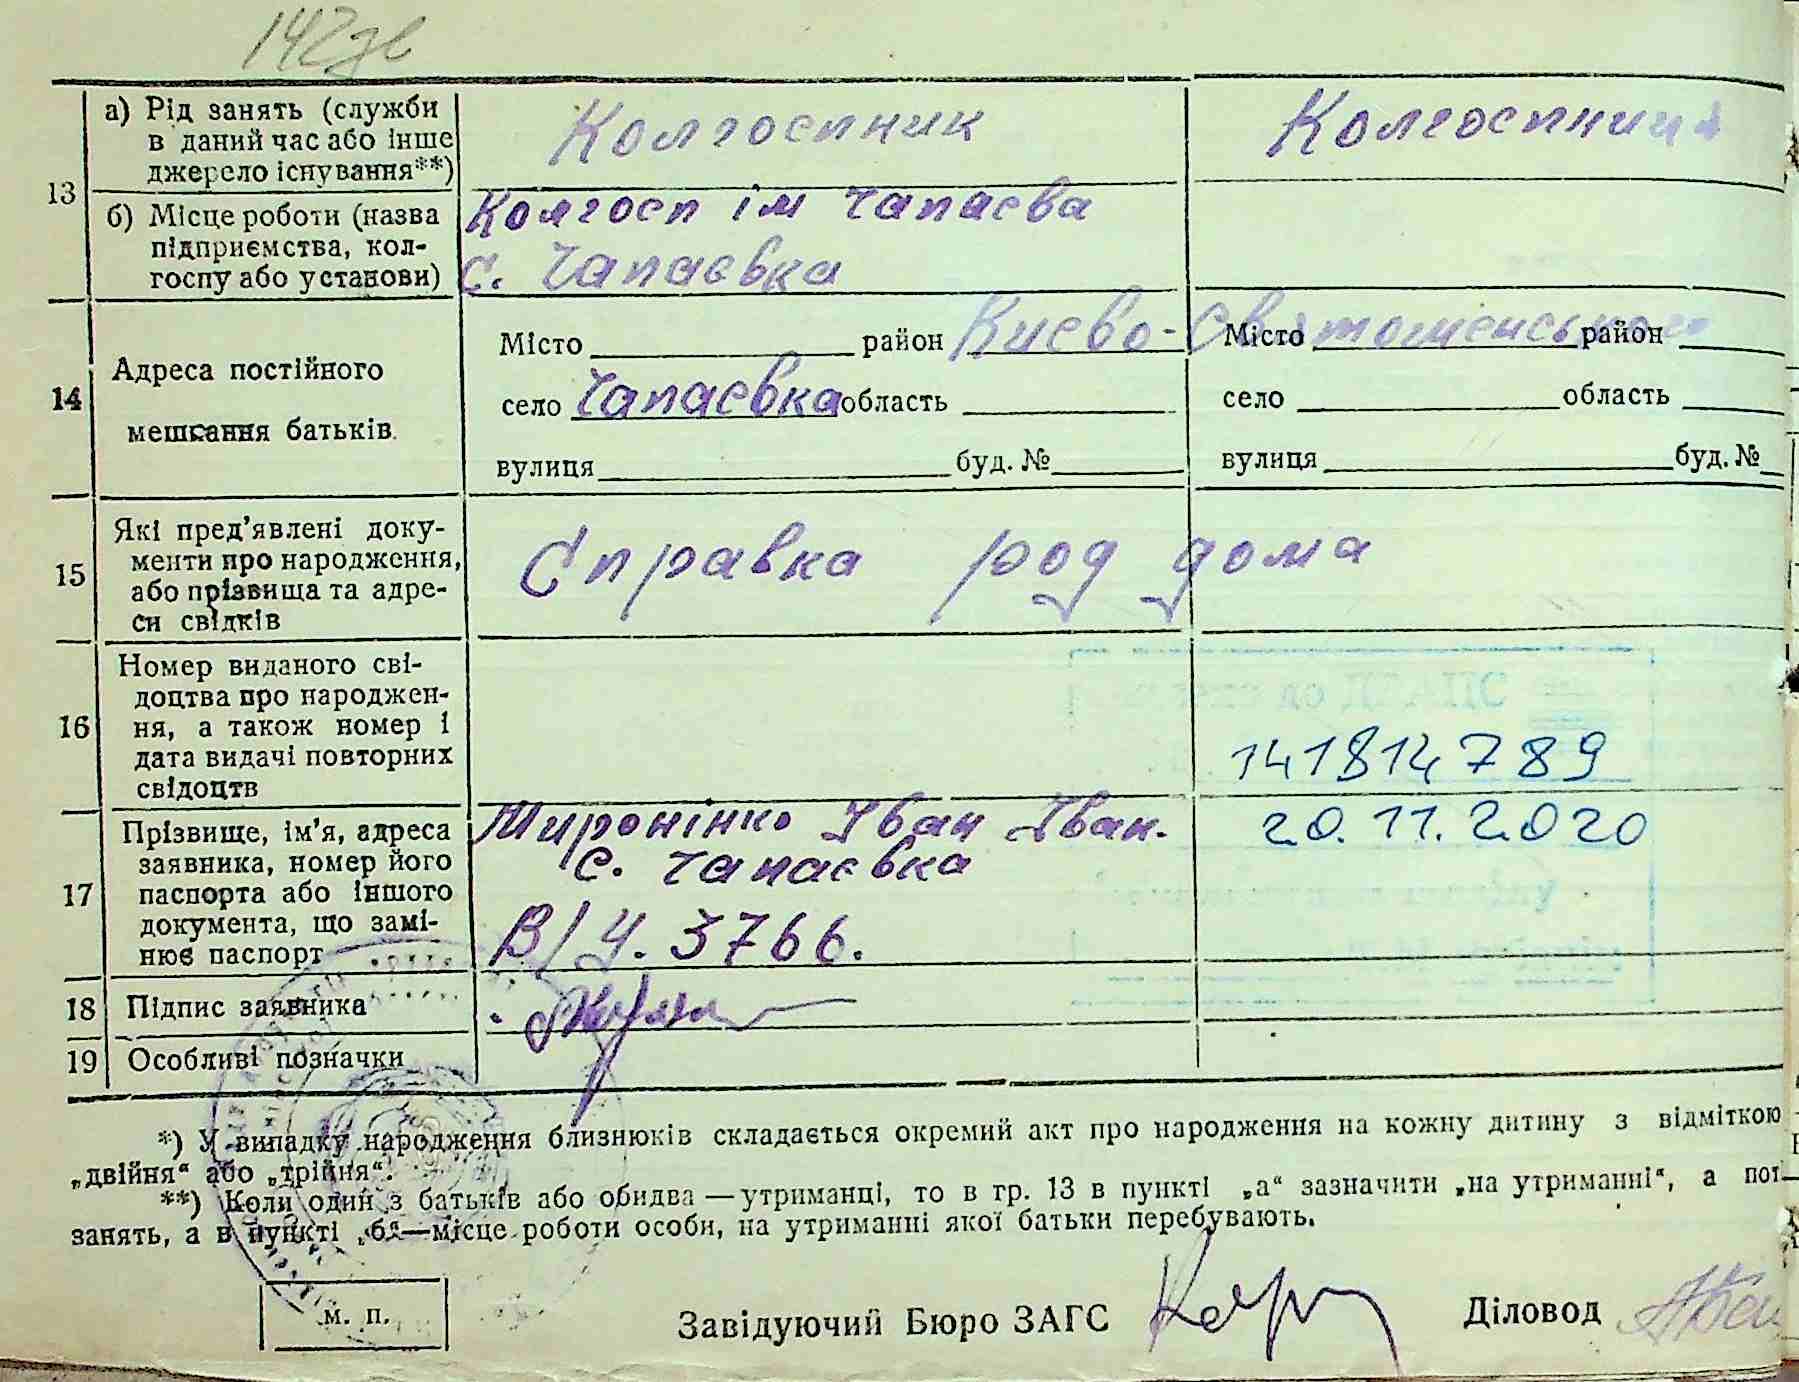 142зв
13
а) Рід занять (служби
в даний час або інше
джерело існування**)
Колгоспник
Колгоспниця
б) Місце роботи (назва
підприємства, кол-
госпу або установи)
Колгосп ім Чапаєва
с. Чапаєвка
14
Адреса постійного
мешкання батьків
Місто район Києво-Святошенського
село Чапаєвка область
вулиця буд. №
Місто район
село область
вулиця буд. №
15
Які пред’явлені доку-
менти про народження,
або прізвища та адре-
си свідків
Справка род дома
16
Номер виданого сві-
доцтва про народжен-
ня, а також номер і
дата видачі повторних
свідоцтв
141814789
20.11.2020
17
Прізвище, ім’я, адреса
заявника, номер його
паспорта або іншого
документа, що замі-
нює паспорт
Миронінко Іван Іван.
с. Чапаєвка
В/Ч. 3766.
18 Підпис заявника
19 Особливі позначки
*) У випадку народження близнюків складається окремий акт про народження на кожну дитину з відміткою
„двійня“ або „трійня“.
**) Коли один з батьків або обидва — утриманці, то в гр. 13 в пункті „а“ зазначити „на утриманні“, а
занять, а в пункті „б“—місце роботи особи, на утриманні якої батьки перебувають.
м. п.
Завідуючий Бюро ЗАГС
Діловод